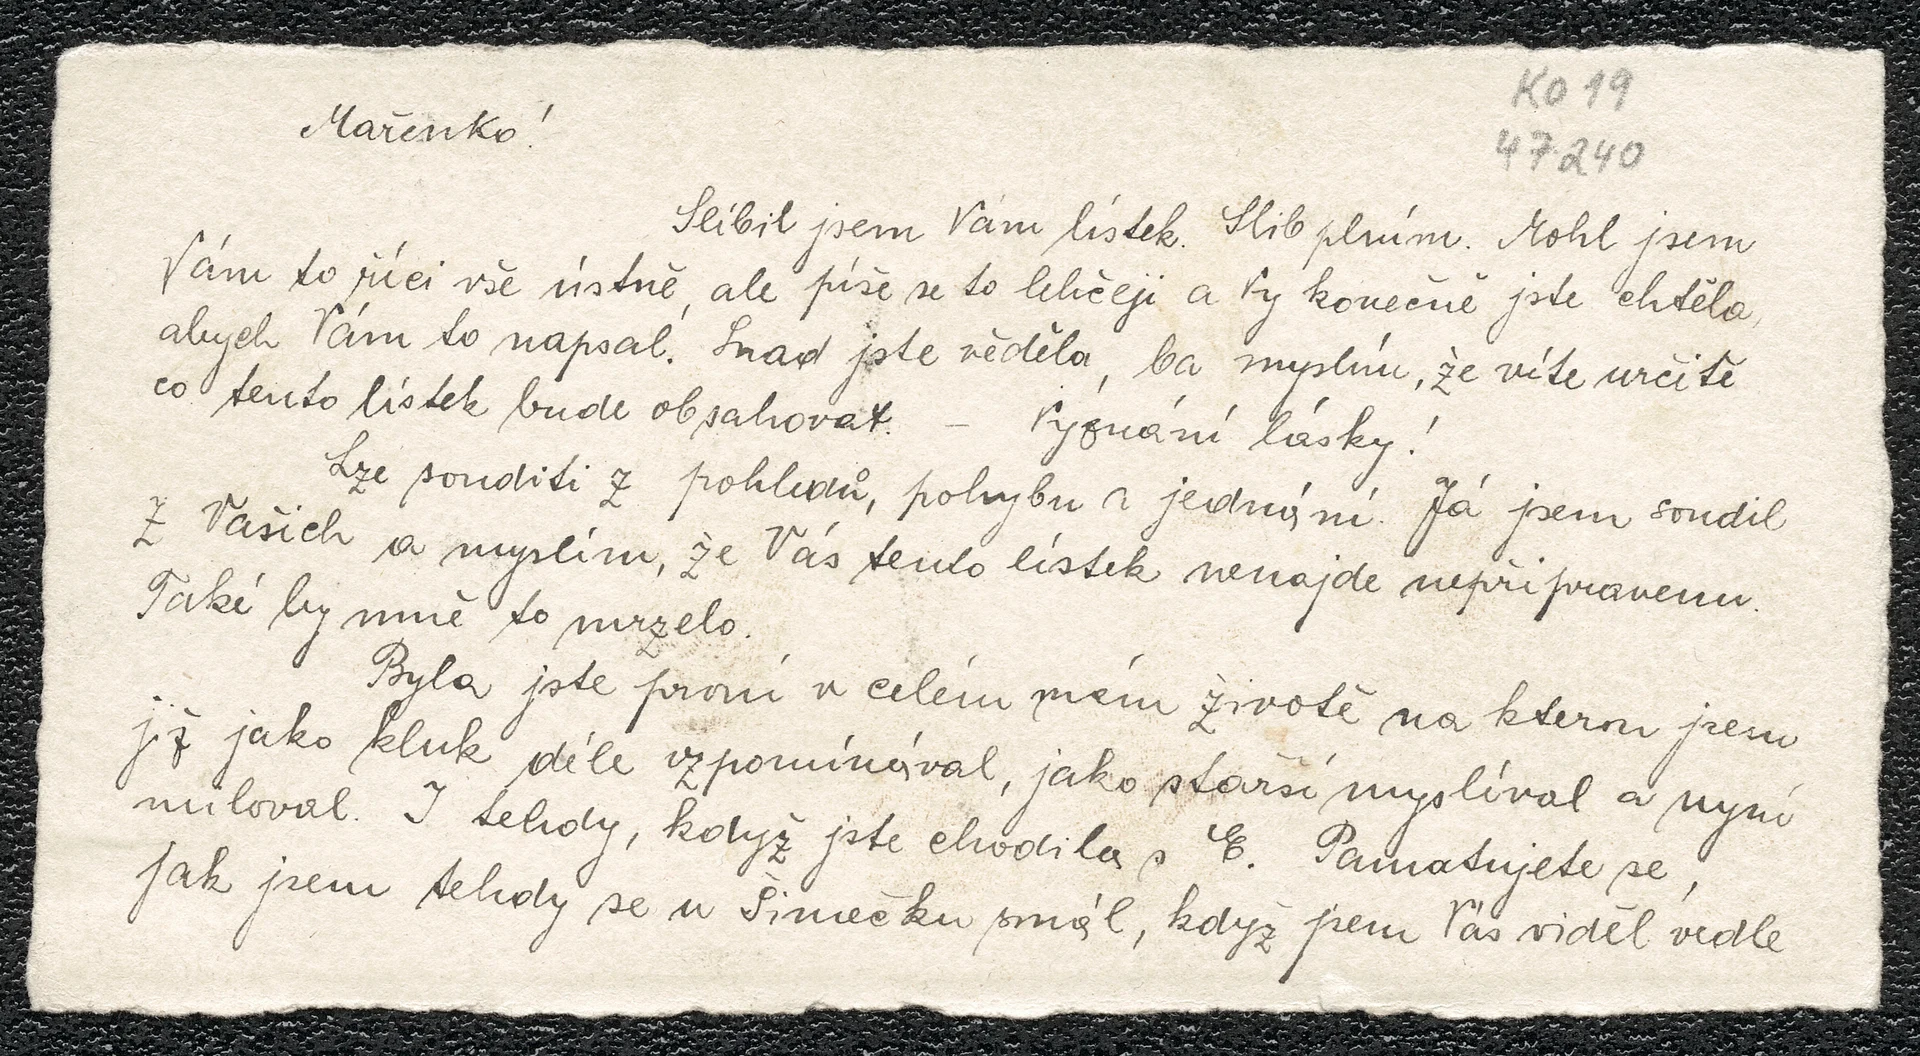 Ko 19
47240
Mařenko!
Slíbil jsem Vám lístek. Slib plním. Mohl jsem
Vám to říci vše ústně, ale píše se to lehčeji a Vy konečně jste chtěla,
abych Vám to napsal. Snad jste věděla, ba myslím, že víte určitě
co tento lístek bude obsahovat. – Význání lásky!
Lze souditi z pohledů, pohybu i jednání. Já jsem soudil
z Vašich a myslím, že Vás tento lístek nenajde nepřipravenu.
Také by mně to mrzelo.
Byla jste první v celém mém životě na kterou jsem
již jako kluk déle vzpomínával, jako starší myslíval a nyní
miloval. I tehdy, když jste chodila s E. Pamatujete se,
jak jsem tehdy se u Šimečků smál, když jsem Vás viděl vedle